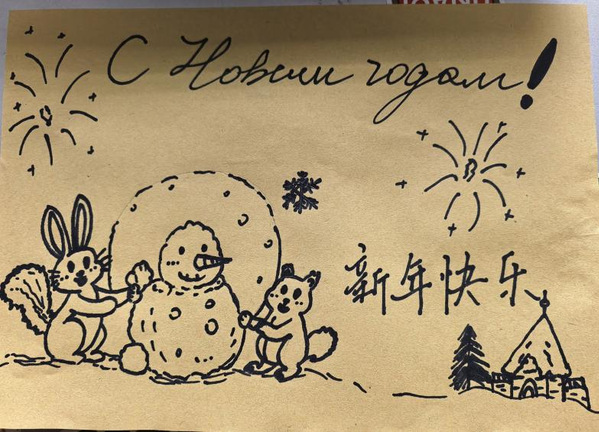 С Новым годом!
新年快乐